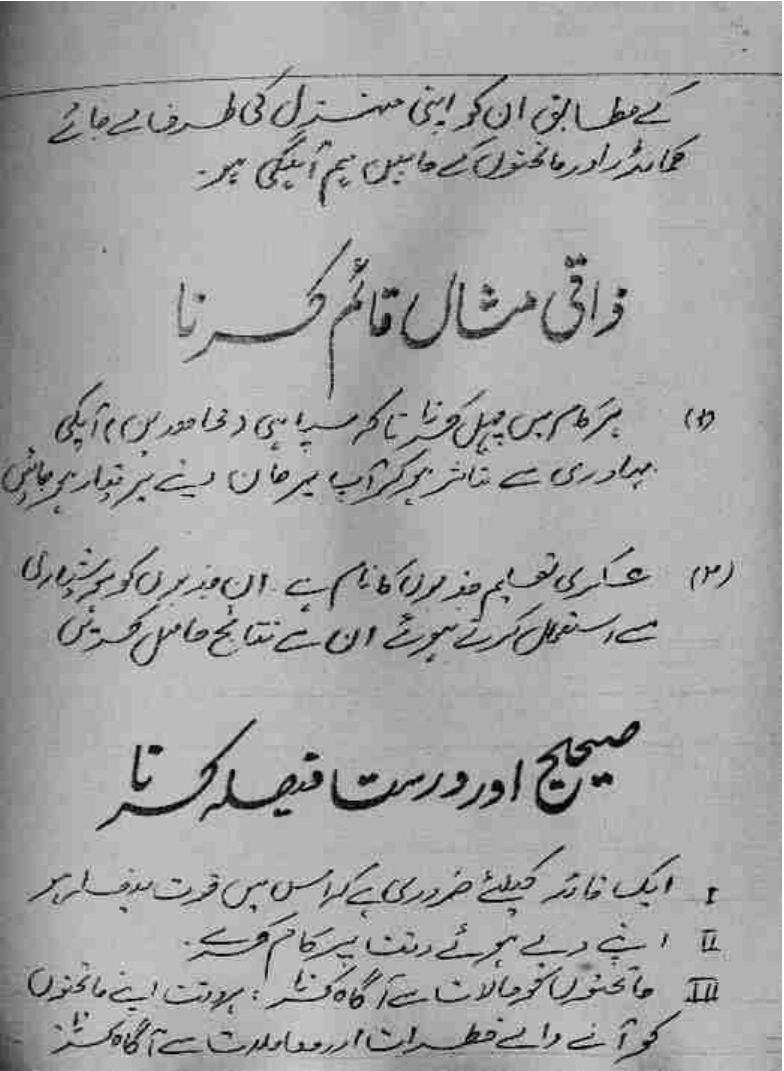 کے مطابق ان کو اپنی منزل کی طرف لے جائے
کمانڈر اور ماتحتوں کے مابین ہم آہنگی ہو۔
ذاتی مثال قائم کرنا
(۱) ہر کام میں پہل کرنا تاکہ سپاہی (مجاہدین) آپکی
بہادری سے متاثر ہو کر آپ پر جان دینے پر تیار ہو جائیں
(۲) عسکری تعلیم جذبوں کا نام ہے ان جذبوں کو ہوشیاری
سے استعمال کرتے ہوئے ان سے نتائج حاصل کریں
صحیح اور درست فیصلہ کرنا
I ایک قائد کیلئے ضروری ہے کہ اس میں قوت فیصلہ ہو
II اپنے دیے ہوئے وقت پر کام کرے۔
III ماتحتوں کو حالات سے آگاہ کرنا : بروقت اپنے ماتحتوں
کو آنے والے خطرات اور معاملات سے آگاہ کرنا